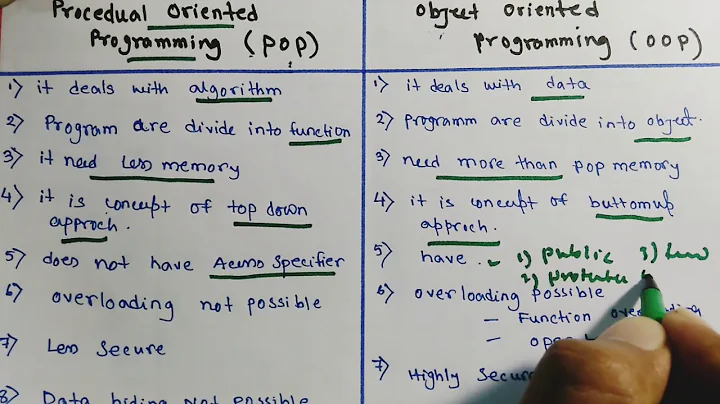 Procedual Oriented
Programming (POP)
1) it deals with algorithm
2) Program are divide into function
3) it need less memory
4) it is concept of top down
approch.
5) does not have Access Specifier
6) overloading not possible
7) Less Secure
8) Data hiding not possible
Object Oriented
Programming (OOP)
1) it deals with data
2) programm are divide into object.
3) need more than pop memory
4) it is concept of buttomup
approch.
5) have . 1) public 3)
2)
6) overloading possible
– Function
–
7) Highly